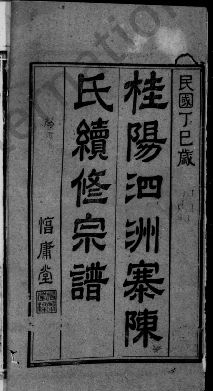 民國丁巳歲
桂陽泗洲寨陳
氏續修宗譜
惇庸堂